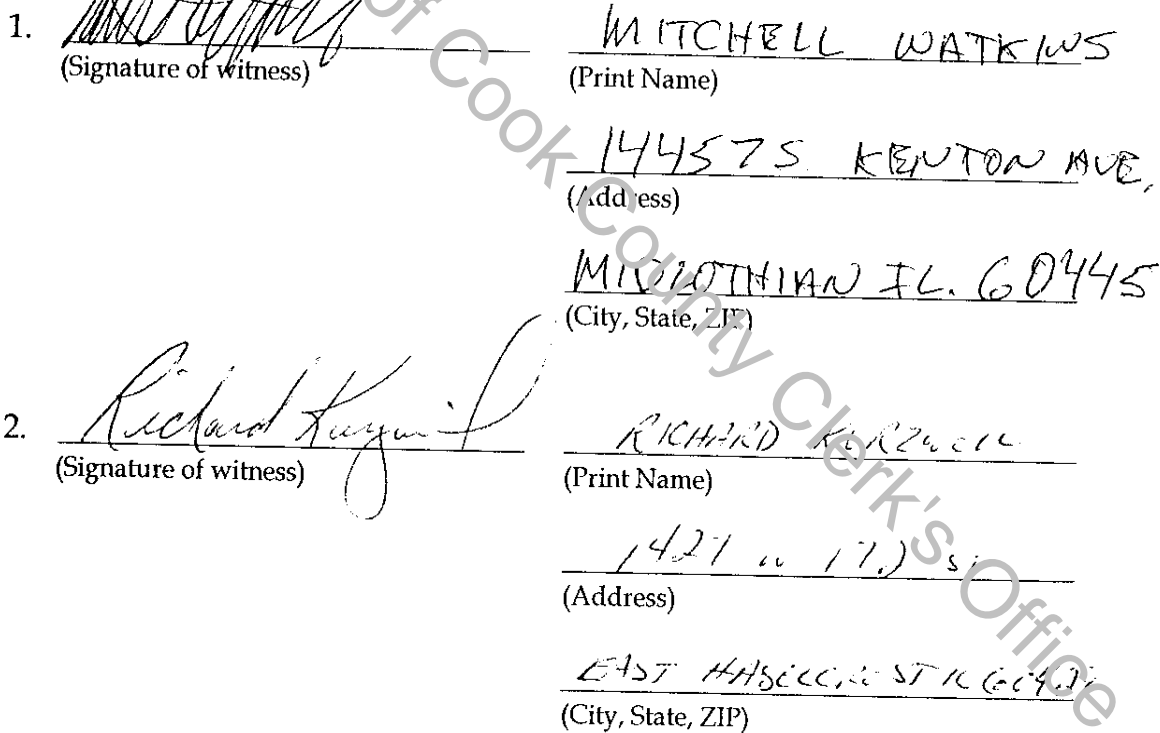 1.
(Signature of witness)
MITCHELL WATKINS
(Print Name)
14457 S KENTON AVE.
(Address)
MIDLOTHIAN IL. 60445
(City, State, ZIP)
2. Richard
(Signature of witness)
RICHARD
(Print Name)
1427 W
(Address)
EAST
(City, State, ZIP)
of Cook County Clerk's Office